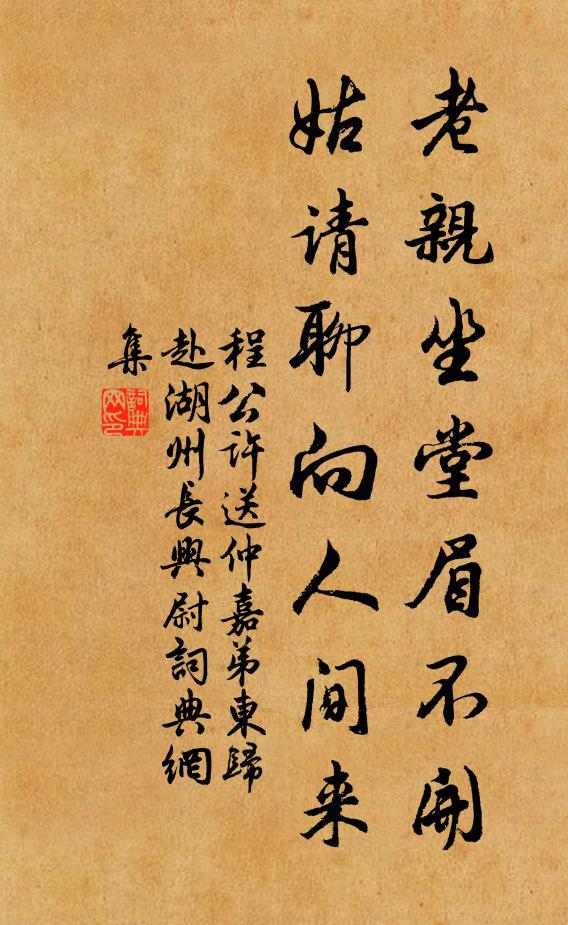 老親坐堂眉不開
姑请聊向人间来
程公许送仲嘉弟東歸
赴湖州長興尉詞典網
集
詞典网印